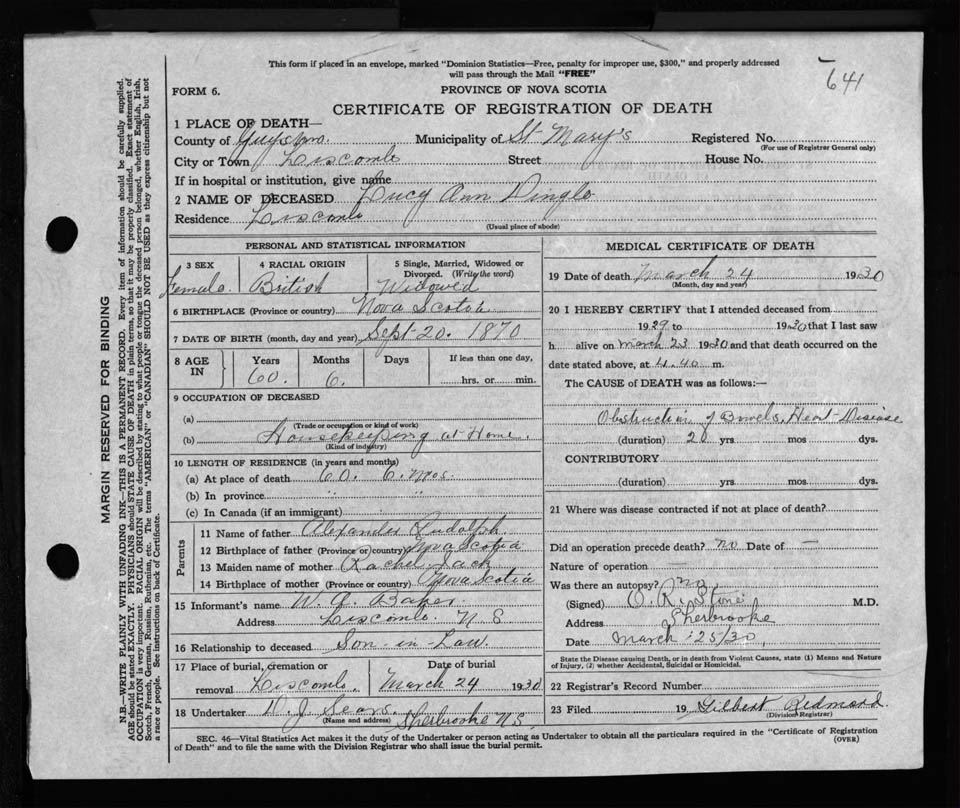 This form if placed in an envelope, marked "Dominion Statistics—Free, penalty for improper use, $300," and properly addressed
will pass through the Mail "FREE"
641
FORM 6.
PROVINCE OF NOVA SCOTIA
CERTIFICATE OF REGISTRATION OF DEATH
1 PLACE OF DEATH—
County of Guysboro. Municipality of St Mary's Registered No.
(For use of Registrar General only)
City or Town Liscomb Street House No.
If in hospital or institution, give name
2 NAME OF DECEASED Lucy Ann Dingle
Residence Liscomb
(Usual place of abode)
PERSONAL AND STATISTICAL INFORMATION
3 SEX 4 RACIAL ORIGIN 5 Single, Married, Widowed or
Divorced. (Write the word)
Female. British Widowed
6 BIRTHPLACE (Province or country) Nova Scotia
7 DATE OF BIRTH (month, day and year) Sept 20. 1870
8 AGE IN Years Months Days If less than one day,
60. 6. hrs. or min.
9 OCCUPATION OF DECEASED
(a)
(Trade or occupation or kind of work)
(b) Housekeeping at Home.
(Kind of industry)
10 LENGTH OF RESIDENCE (in years and months)
(a) At place of death 60. 6. mos.
(b) In province " "
(c) In Canada (if an immigrant)
Parents
11 Name of father Alexander Rudolph.
12 Birthplace of father (Province or country) Nova Scotia
13 Maiden name of mother Rachel Jack
14 Birthplace of mother (Province or country) Nova Scotia
15 Informant's name W. Baker.
Address Liscomb. N S
16 Relationship to deceased Son in-Law.
17 Place of burial, cremation or removal Liscomb. Date of burial March 24 1930
18 Undertaker D. J. Sears. Sherbrooke N S
(Name and address)
MEDICAL CERTIFICATE OF DEATH
19 Date of death March 24 1930
(Month, day and year)
20 I HEREBY CERTIFY that I attended deceased from
1929 to 1930 that I last saw
h alive on March 23 1930 and that death occurred on
date stated above, at 4.40 m.
The CAUSE of DEATH was as follows:—
Obstruction of Bowels, Heart Disease
(duration) 20 yrs. mos. dys.
CONTRIBUTORY
(duration) yrs. mos. dys.
21 Where was disease contracted if not at place of death?
Did an operation precede death? no Date of —
Nature of operation —
Was there an autopsy? no
(Signed) Stone M.D.
Address Sherbrooke
Date March 25/30
State the Disease causing Death, or in death from Violent Causes, state (1) Means and Nature
of Injury, (2) whether Accidental, Suicidal or Homicidal.
22 Registrar's Record Number
23 Filed 19 Gilbert Redmond
(Division Registrar)
SEC. 46—Vital Statistics Act makes it the duty of the Undertaker or person acting as Undertaker to obtain all the particulars required in the "Certificate of Registration
of Death" and to file the same with the Division Registrar who shall issue the burial permit.
(OVER)
MARGIN RESERVED FOR BINDING
N.B.—WRITE PLAINLY WITH UNFADING INK—THIS IS A PERMANENT RECORD. Every item of information should be carefully supplied.
AGE should be stated EXACTLY. PHYSICIANS should STATE CAUSE OF DEATH in plain terms, so that it may be properly classified. Exact statement of
OCCUPATION is very important. RACIAL ORIGIN will be described by stating to what people or tongue the deceased person belonged, whether English, Irish,
Scotch, French, German, Russian, Ruthenian, etc. The terms "AMERICAN" or "CANADIAN" SHOULD NOT BE USED as they express citizenship but not
a race or people. See instructions on back of Certificate.